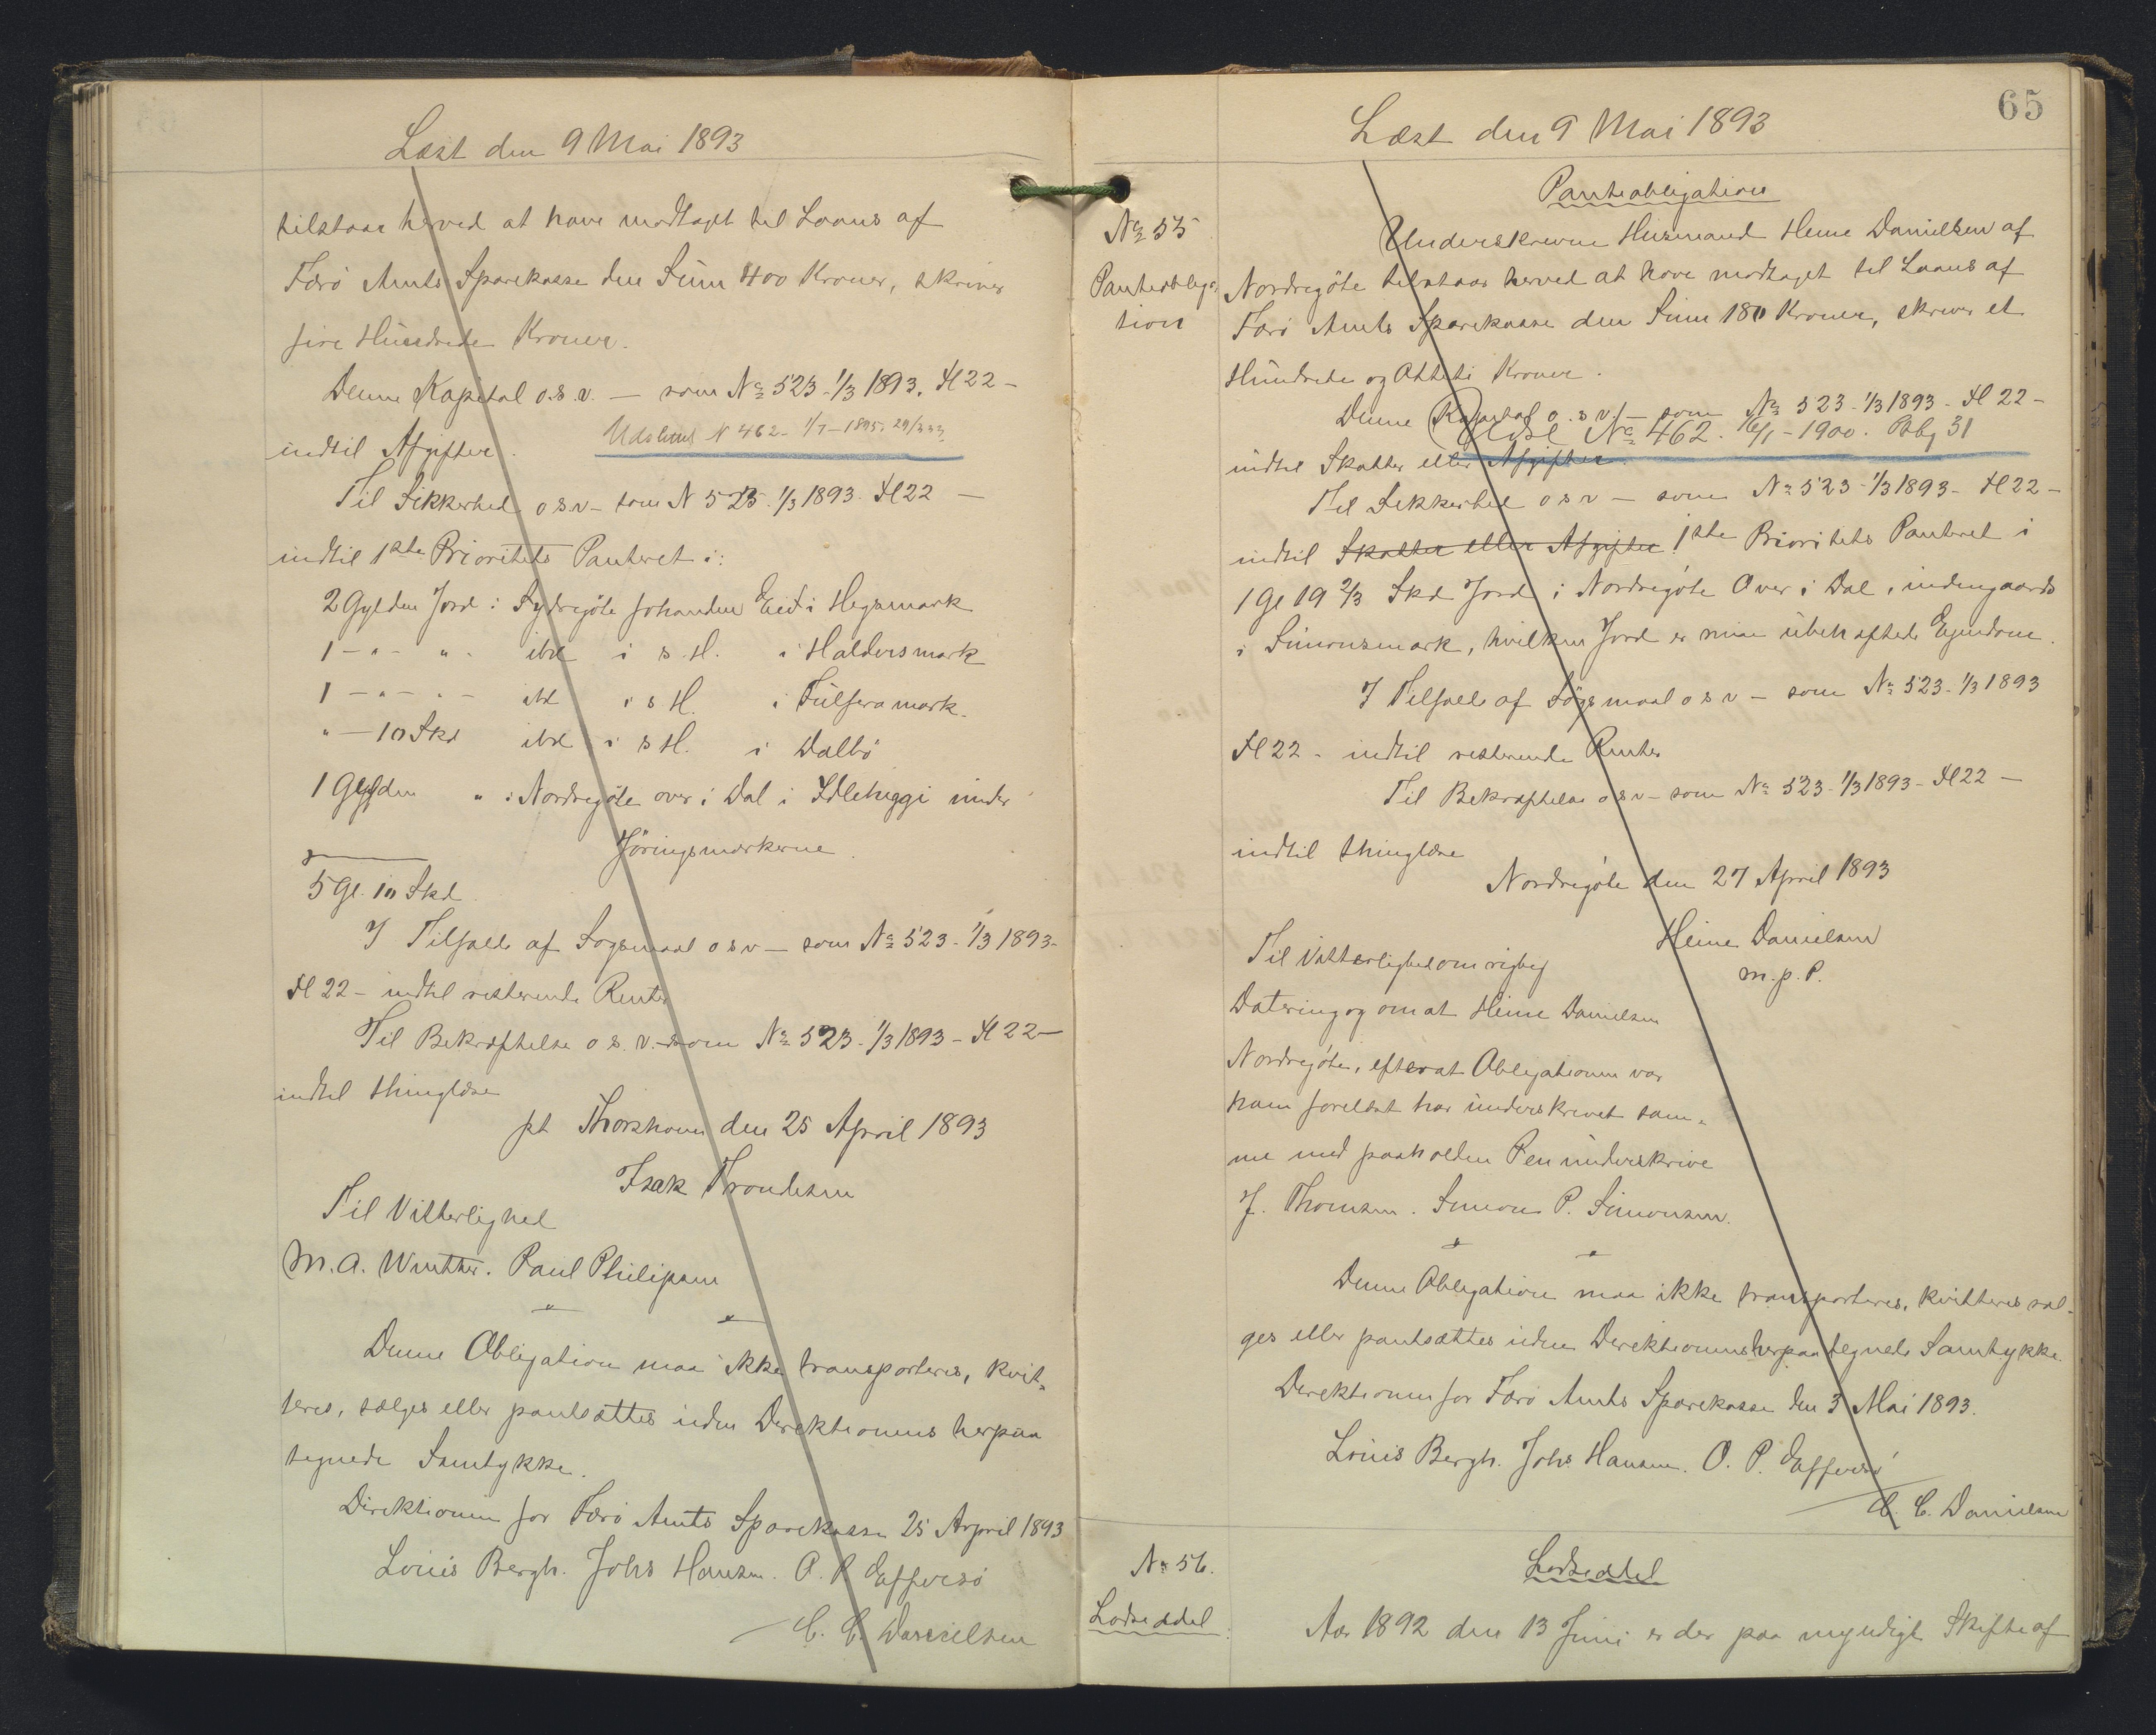 Læst den 9 Mai 1893
tilstaar herved at have modtaget til Laans af
Færö Amts Sparekasse den Sum 400 Kroner, skriver
fire Hundrede Kroner.
Denne Kapital o.s.v. — som No 523 - 1/3 1893. Fl 22 -
indtil Afgifter.
Udslettet N 462 - 1/7 - 1895.
Til Sikkerhed o s v - som N 523. 1/3 1893. Fl 22 —
indtil 1ste Prioritets Panteret i:
2 Gylden Jord i Sydregöte i Hegamark
1 - " - " - ibd i s. H. i Haldersmark
1 - " - " - ibd i s H. i mark.
" - 10 Skd ibd i s H. i Dalbö
1 Gylden " i Nordregöte over i Dal i under
Jöringsmarkerne.
5 Gl. 10 Skd.
I Tilfælde af Sogsmaal o s v — som No 523 - 1/3 1893-
Fl 22 - indtil resterende Renter
Til Bekræftelse o s. v. - som No 523 - 1/3 1893 - Fl 22 —
indtil thinglæse
pt Thorshavn den 25 April 1893
Isak Trondesen
Til Vitterlighed
M. A. Winther. Paul Philipsen
Denne Obligation maa ikke transporteres, kvit=
teres, sælges eller pantsættes uden Direktionens herpaa
tegnede Samtykke.
Direktionen for Færö Amts Sparekasse 25 April 1893
Louis Bergh. Johs Hansen. O. P. Effersö
C. C. Danielsen
65
Læst den 9 Mai 1893
Panteobligation
No 55
Panteobliga=
tion
Underskrevne Husmand Heine Danielsen af
Nordregöte tilstaar herved at have modtaget til Laans af
Færö Amts Sparekasse den Sum 180 Kroner, skriver et
Hundrede og Otteti Kroner.
Denne Kapital o. s v. — som No 523 - 1/3 1893 - Fl 22 -
Udsl No 462. 16/1 - 1900. Pbg 31
indtil Skatter eller Afgifter.
Til Sikkerhed o s v — som No 523 - 1/3 1893 - Fl 22 -
indtil Skatter eller Afgifter 1ste Prioritets Panteret i
1 Gl 19 2/3 Skd Jord i Nordregöte Over i Dal, indengaards
i Simonsmark, hvilken Jord er min übehæftede Ejendom.
I Tilfælde af Sögsmaal o s v — som No 523 - 1/3 1893
Fl 22 - indtil resterende Renter
Til Bekræftelse o s v - som No 523 - 1/3 1893 - Fl 22 —
indtil thinglæse
Nordregöte den 27 April 1893
Heine Danielsen
m. p. P.
Til Vitterlighed om rigtig
Datering og om at Heine Danielsen
Nordregöte, efterat Obligationen var
ham forelæst har underskrevet sam=
me med paaholden Pen underskrive
J. Thomsen. Simon P. Simonsen.
Denne Obligation maa ikke transporteres, kvitteres sæl-
ges eller pantsættes uden Direktionens herpaa tegnede Samtykke.
Direktionen for Færö Amts Sparekasse den 3 Mai 1893.
Louis Bergh. Johs Hansen. O. P. Effersö
C. C. Danielsen
No 56.
Lodseddel
Lodseddel
Aar 1892 den 13 Juni er der paa myndigt Skifte af